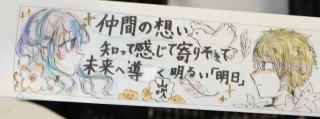 仲間の想い
知って感じて寄りそって
未来へ導く明るい「明日」